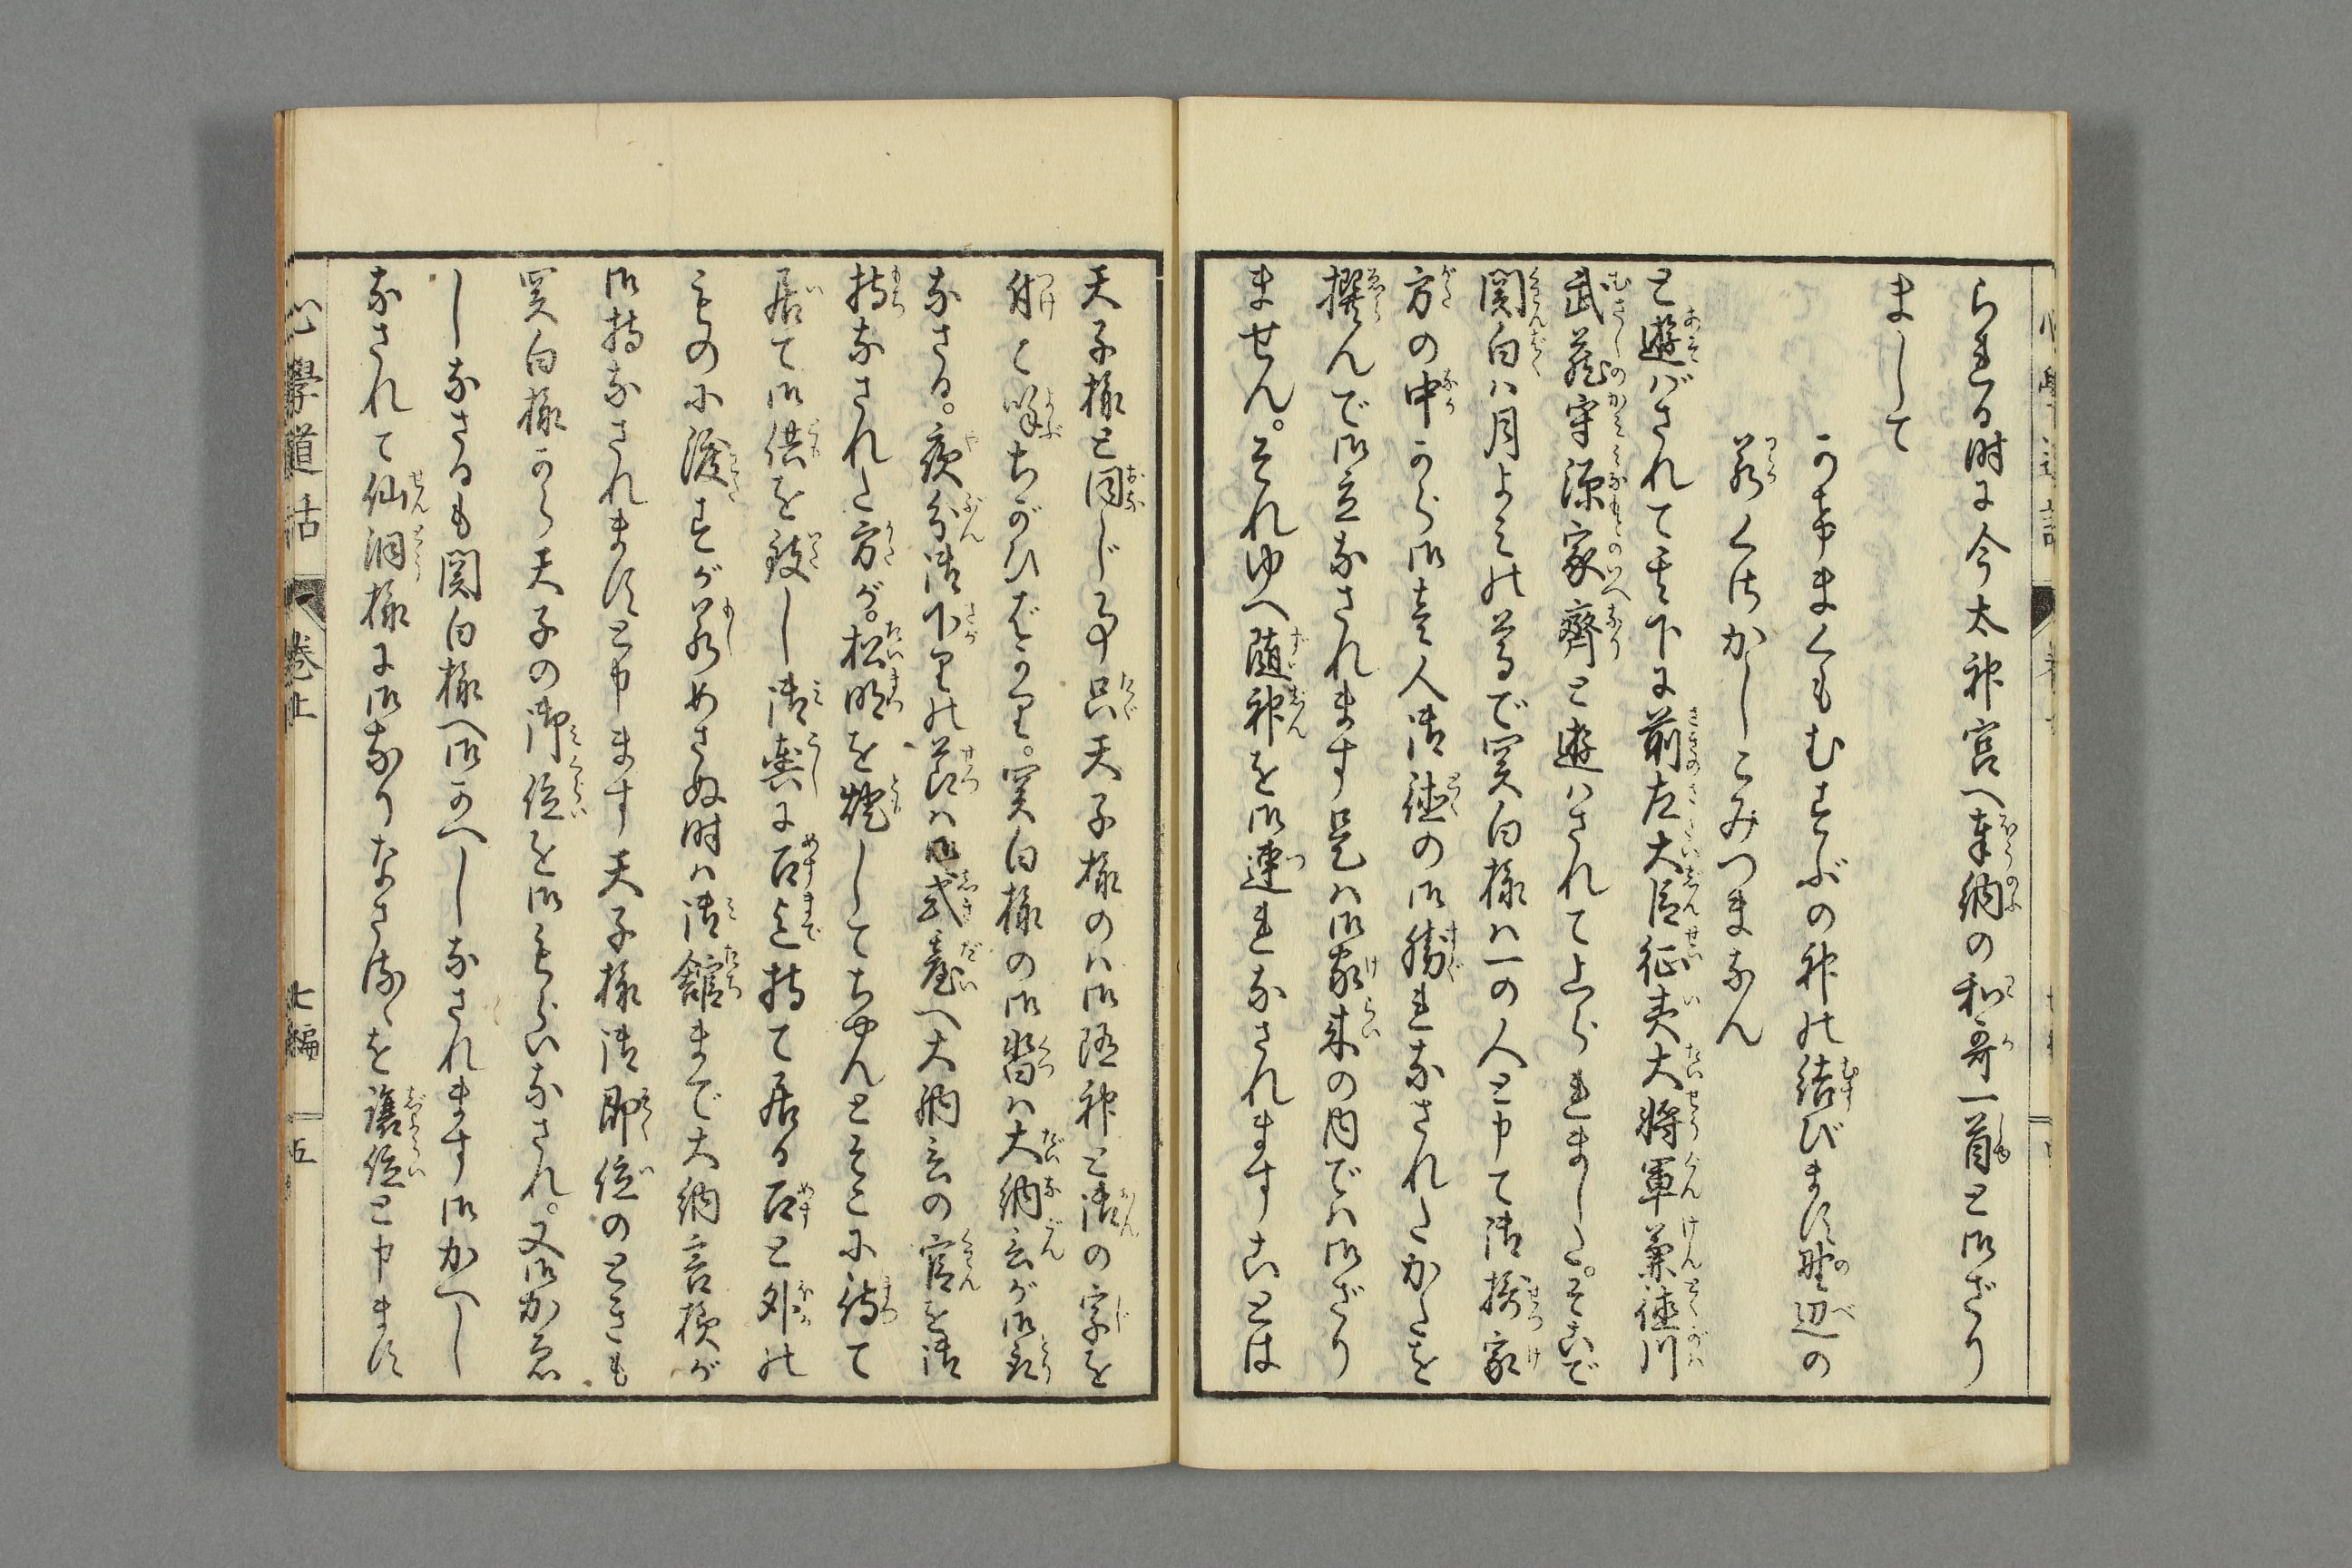 られる時に今太神宮へ奉納の和哥一首と御ざり
まして
かけまくもむすぶの神の結びます野辺の
若くさかしこみつまなん
と遊バされて其下に前左大臣征夷大将軍兼徳川
武蔵守源家齊と遊ハされて上られました。そこで
関白ハ月よみの尊で関白様ハ一の人と申て御摂家
方の中から御壱人御徳の御勝れなされたかたを
撰んで御立なされます是ハ御家来の内でハ御ざり
ません。それゆへ随神を御連れなされますことは
天子様と同じ事只天子様のハ御随神と御の字を
付て呼ちがひばかり。関白様の御沓ハ大納言が御取
なさる。夜分御下りの節ハ御式臺へ大納言の官を御
持なされた方が。松明を燈してちやんとそこに待て
居て御供を致し御輿に召迄持て居る召と外の
ものに渡すが若めさぬ時ハ御舘まで大納言様が
御持なされますと申ます天子様御即位のときも
関白様から天子の御位を御もらいなされ。又御かゑ
しなさるも関白様へ御かへしなされます御かへし
なされて仙洞様に御なりなさるゝを譲位と申ます
心學道話
卷上
七編
五